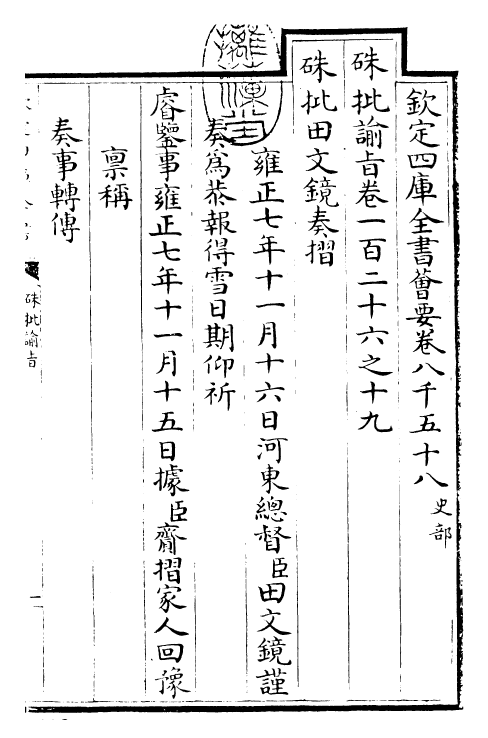 欽定四庫全書薈要卷八千五十八 史部
硃批諭旨卷一百二十六之十九
硃批田文鏡奏摺
雍正七年十一月十六日河東總督臣田文鏡謹
奏為恭報得雪日期仰祈
睿鑒事雍正七年十一月十五日據臣齎摺家人回豫
稟稱
奏事轉傳
硃批諭旨
一